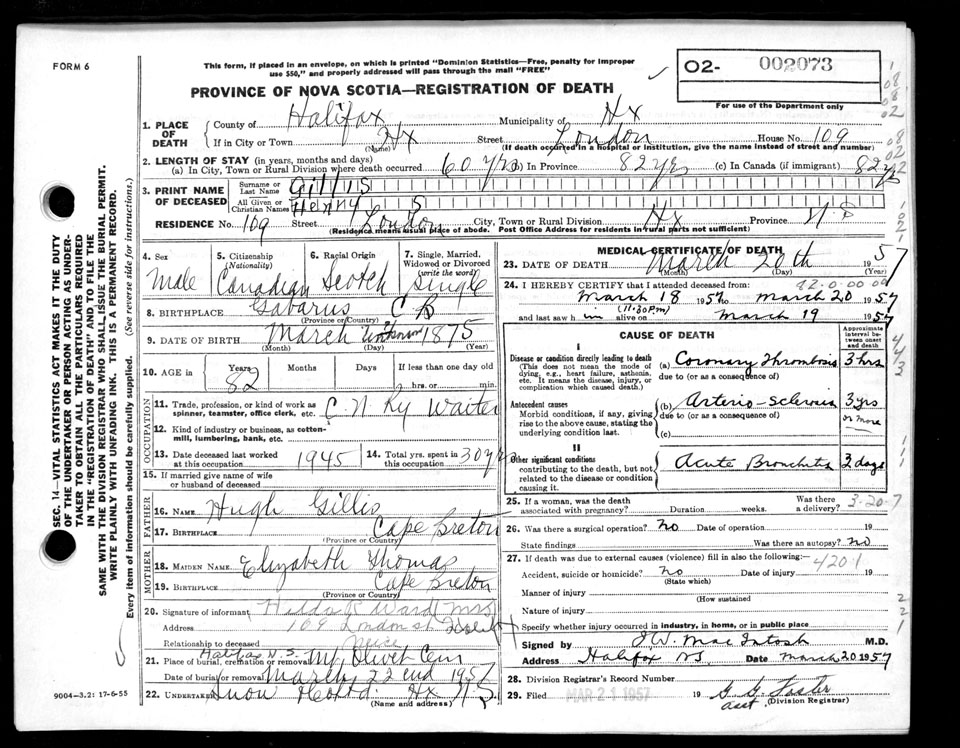 FORM 6
This form, if placed in an envelope, on which is printed "Dominion Statistics—Free, penalty for improper
use $50," and properly addressed will pass through the mail "FREE"
O2- 002073
For use of the Department only
PROVINCE OF NOVA SCOTIA—REGISTRATION OF DEATH
1. PLACE OF DEATH
County of Halifax Municipality of Hx
If in City or Town Hx Street London House No. 109
(Name) (If death occurred in a hospital or institution, give the name instead of street and number)
2. LENGTH OF STAY (in years, months and days)
(a) In City, Town or Rural Division where death occurred 60 yrs (b) In Province 82 yrs (c) In Canada (if immigrant) 82 yrs
3. PRINT NAME OF DECEASED
Surname or Last Name Gillis
All Given or Christian Names Henry S
RESIDENCE No. 109 Street London City, Town or Rural Division Hx Province N S
(Residence means usual place of abode. Post Office Address for residents in rural parts not sufficient)
4. Sex Male
5. Citizenship (Nationality) Canadian
6. Racial Origin Scotch
7. Single, Married, Widowed or Divorced (write the word) Single
8. BIRTHPLACE Gabarus C B
(Province or Country)
9. DATE OF BIRTH March unknown 1875
(Month) (Day) (Year)
10. AGE Years 82 Months Days If less than one day old
hrs. or min.
OCCUPATION
11. Trade, profession, or kind of work as spinner, teamster, office clerk, etc. C. N Ry Waiter
12. Kind of industry or business, as cotton-mill, lumbering, bank, etc.
13. Date deceased last worked at this occupation 1945
14. Total yrs. spent in this occupation 30 yrs
15. If married give name of wife or husband of deceased
FATHER
16. NAME Hugh Gillis
17. BIRTHPLACE Cape Breton
(Province or Country)
MOTHER
18. MAIDEN NAME Elizabeth Thomas
19. BIRTHPLACE Cape Breton
(Province or Country)
20. Signature of informant Hilda R Ward (Mrs)
Address 109 London St
Relationship to deceased Niece
21. Place of burial, cremation or removal Halifax N.S. Mt Olivet Cem
Date of burial or removal March 22 1957
22. UNDERTAKER Snow Hx N.S.
(Name and address)
9004—3.2: 17-6-55
MEDICAL CERTIFICATE OF DEATH
23. DATE OF DEATH March 20th 1957
(Month) (Day) (Year)
24. I HEREBY CERTIFY that I attended deceased from
March 18 1957 to March 20 1957
(11:30 PM)
and last saw him alive on March 19 1957
CAUSE OF DEATH
Approximate interval between onset and death
I
Disease or condition directly leading to death (a) Coronary Thrombosis 3 hrs
(This does not mean the mode of dying, e.g., heart failure, asthenia, etc. It means the disease, injury, or complication which caused death.)
due to (or as a consequence of)
Antecedent causes (b) Arterio-sclerosis 3 yrs or more
Morbid conditions, if any, giving rise to the above cause, stating the underlying condition last.
due to (or as a consequence of)
(c)
II
Other significant conditions Acute Bronchitis 3 days
contributing to the death, but not related to the disease or condition causing it.
25. If a woman, was the death associated with pregnancy? Duration weeks. Was there a delivery?
3-20-7
26. Was there a surgical operation? no Date of operation 19
State findings Was there an autopsy? no
27. If death was due to external causes (violence) fill in also the following:—
4201
Accident, suicide or homicide? no Date of injury 19
(State which)
Manner of injury
(How sustained
Nature of injury
Specify whether injury occurred in industry, in home, or in public place
Signed by J W. MacIntosh M.D.
Address Halifax NS Date March 20 1957
28. Division Registrar's Record Number
29. Filed MAR 21 1957 19
asst (Division Registrar)
SEC. 14—VITAL STATISTICS ACT MAKES IT THE DUTY
OF THE UNDERTAKER OR PERSON ACTING AS UNDER-
TAKER TO OBTAIN ALL THE PARTICULARS REQUIRED
IN THE "REGISTRATION OF DEATH" AND TO FILE THE
SAME WITH THE DIVISION REGISTRAR WHO SHALL ISSUE THE BURIAL PERMIT.
WRITE PLAINLY WITH UNFADING INK. THIS IS A PERMANENT RECORD.
Every item of information should be carefully supplied. (See reverse side for instructions.)